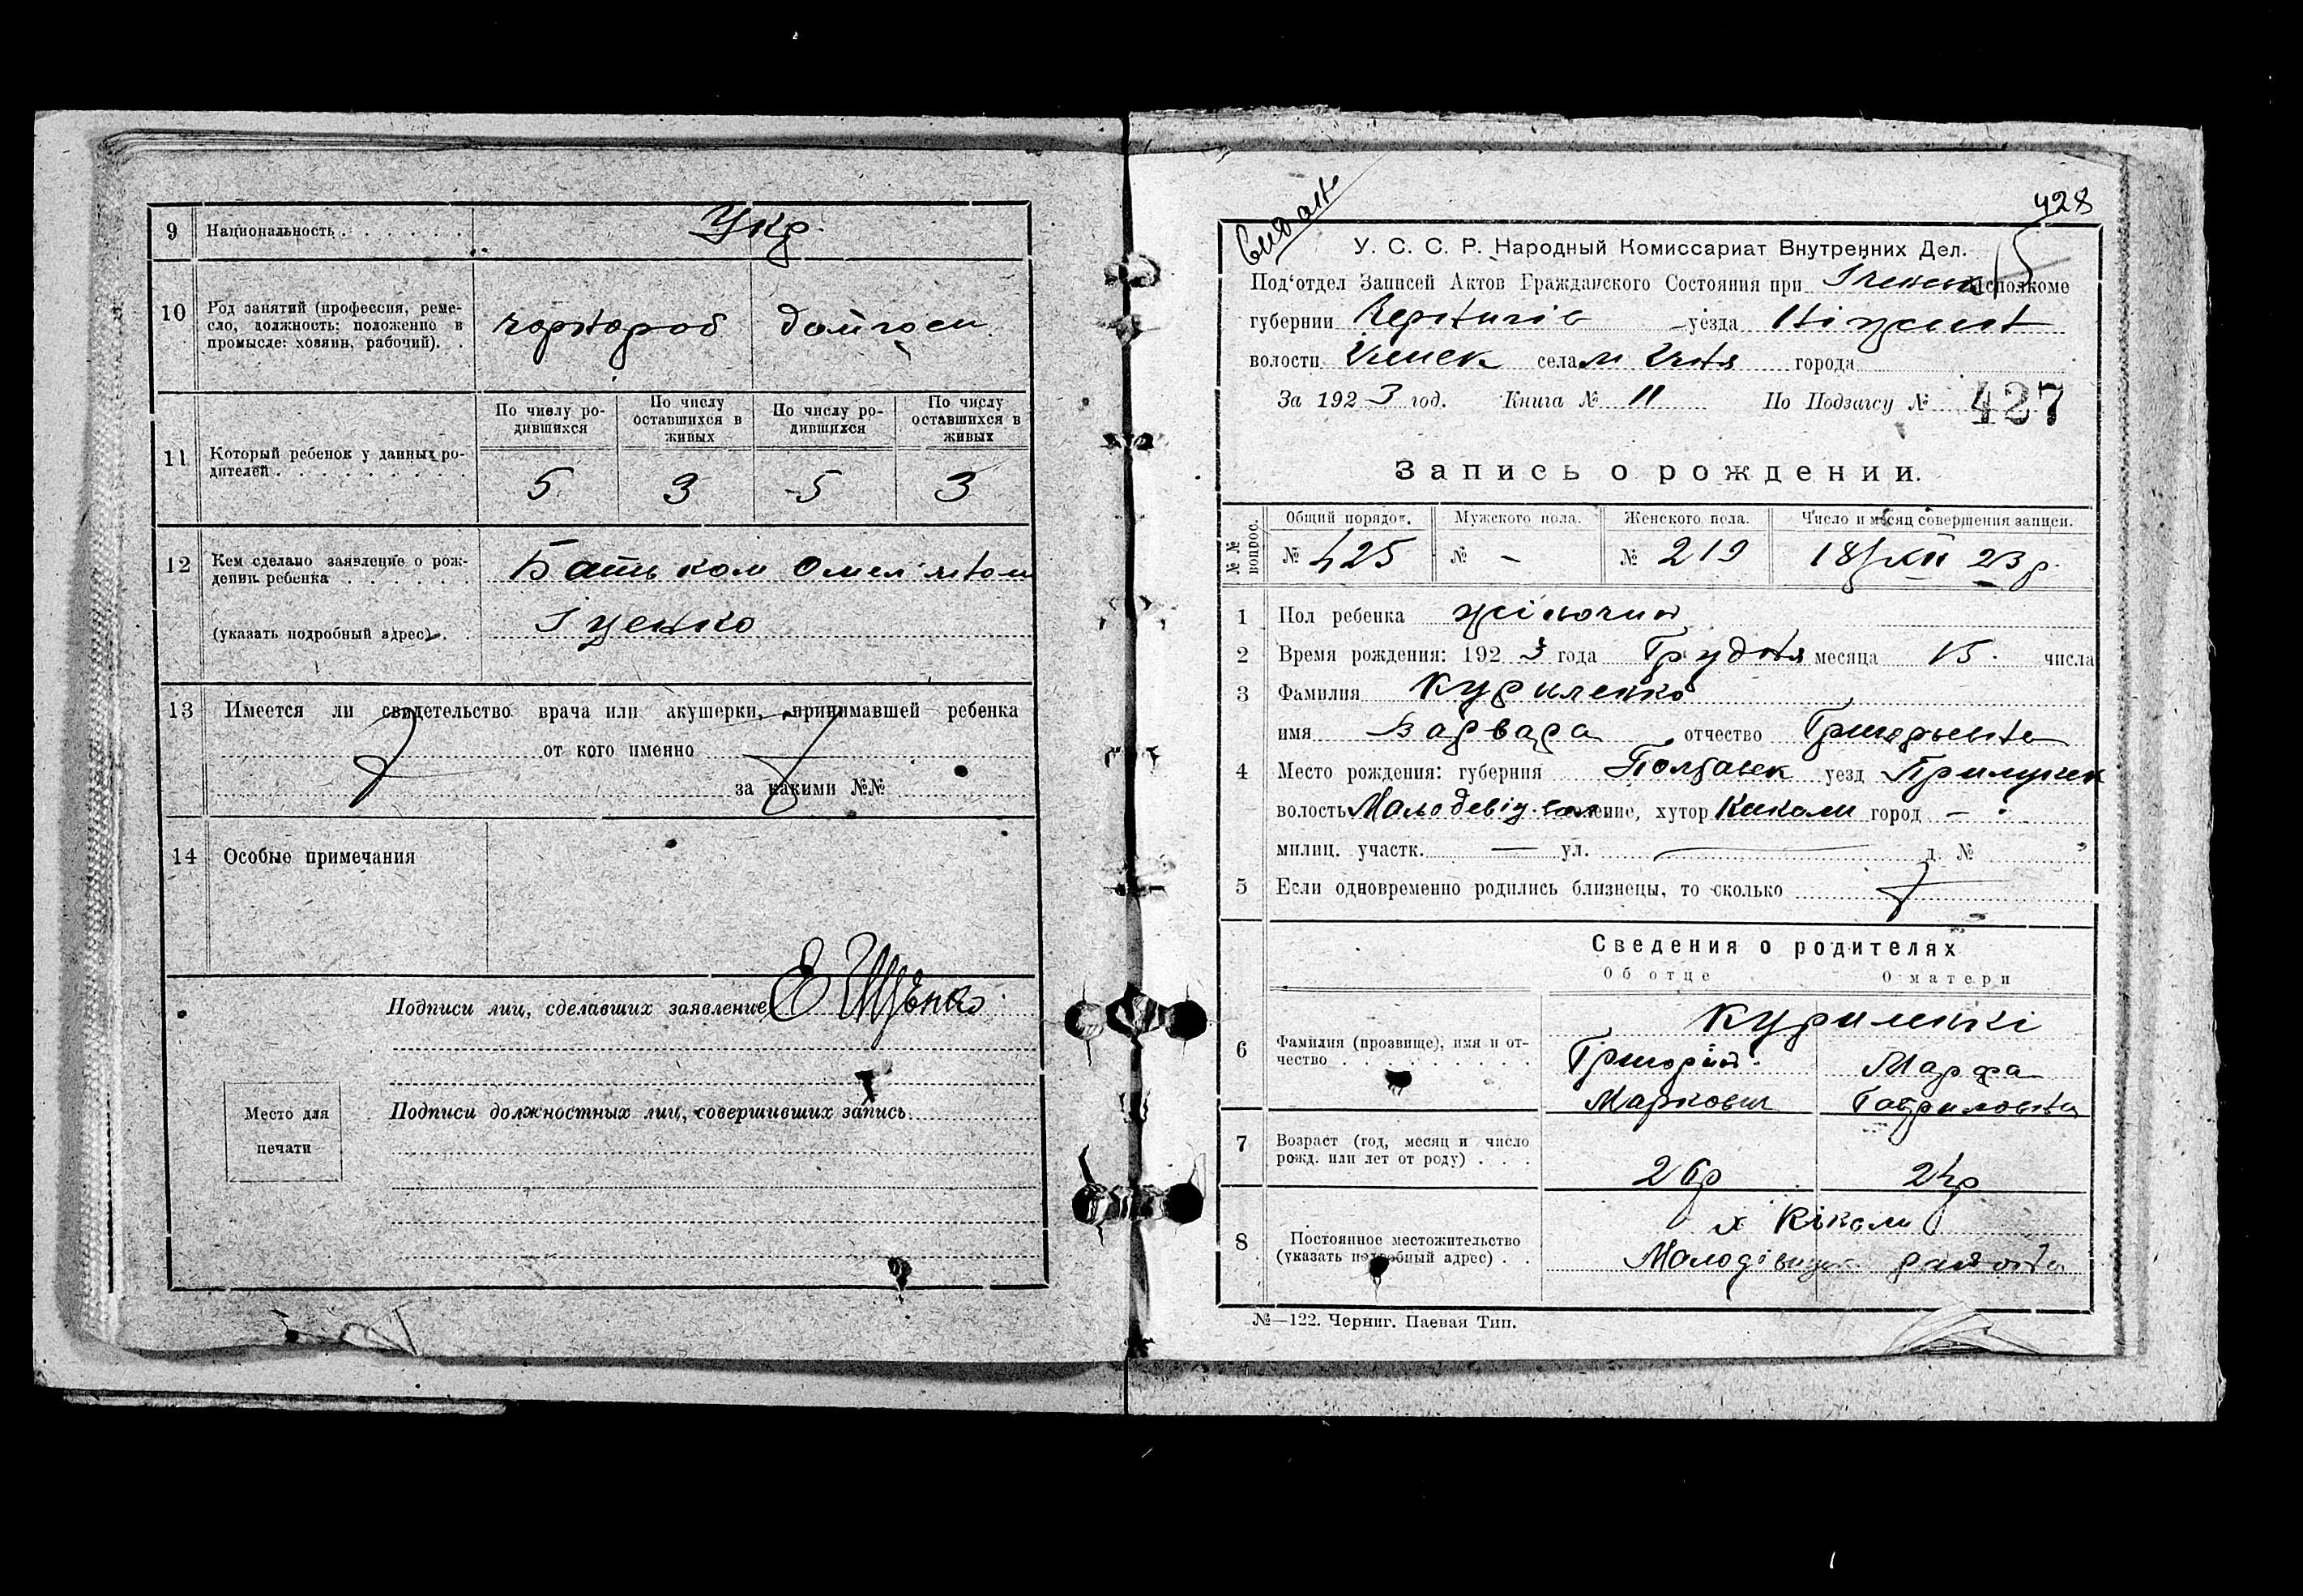 9 Национальность Укр.
10 Род занятий (профессия, реме-
сло, должность; положение в
промысле: хозяин, рабочий).
чорнороб домгосп
11 Который ребенок у данных ро-
дителей
По числу ро-
дившихся
По числу
оставшихся в
живых
По числу ро-
дившихся
По числу
оставшихся в
живых
5 3 5 3
12 Кем сделано заявление о рож-
дении ребенка Батьком
(указать подробный адрес)
13 Имеется ли свидетельство врача или акушерки, принимавшей ребенка
от кого именно
за какими №№
14 Особые примечания
Подписи лиц, сделавших заявление
Подписи должностных лиц, совершивших запись
Место для
печати
428
У. С. С. Р. Народный Комиссариат Внутренних Дел.
Под'отдел Записей Актов Гражданского Состояния при исполкоме
губернии уезда
волости села города
За 1923 год. Книга № 11 По Подзагсу № 427
Запись о рождении.
№№ вопрос.
Общий порядок. Мужского пола. Женского пола. Число и месяц совершения записи.
№ 425 № - № 219 18/XII 23 р.
1 Пол ребенка жіночий
2 Время рождения: 1923 года Грудня месяца 15 числа
3 Фамилия Куриленко
имя Варвара отчество Григорьевна
4 Место рождения: губерния Полтавск уезд Прилуцек
волость Малодевіц. селение, хутор Кикали город -
милиц. участк. — ул. — д. №
5 Если одновременно родились близнецы, то сколько
Сведения о родителях
Об отце О матери
6 Фамилия (прозвище), имя и от-
чество
Куриленкі
Григорій Марфа
Маркович Гавриловна
7 Возраст (год, месяц и число
рожд. или лет от роду)
26 р 24 р
8 Постоянное местожительство
(указать подробный адрес)
х Кікали
№—122. Черниг. Паевая Тип.